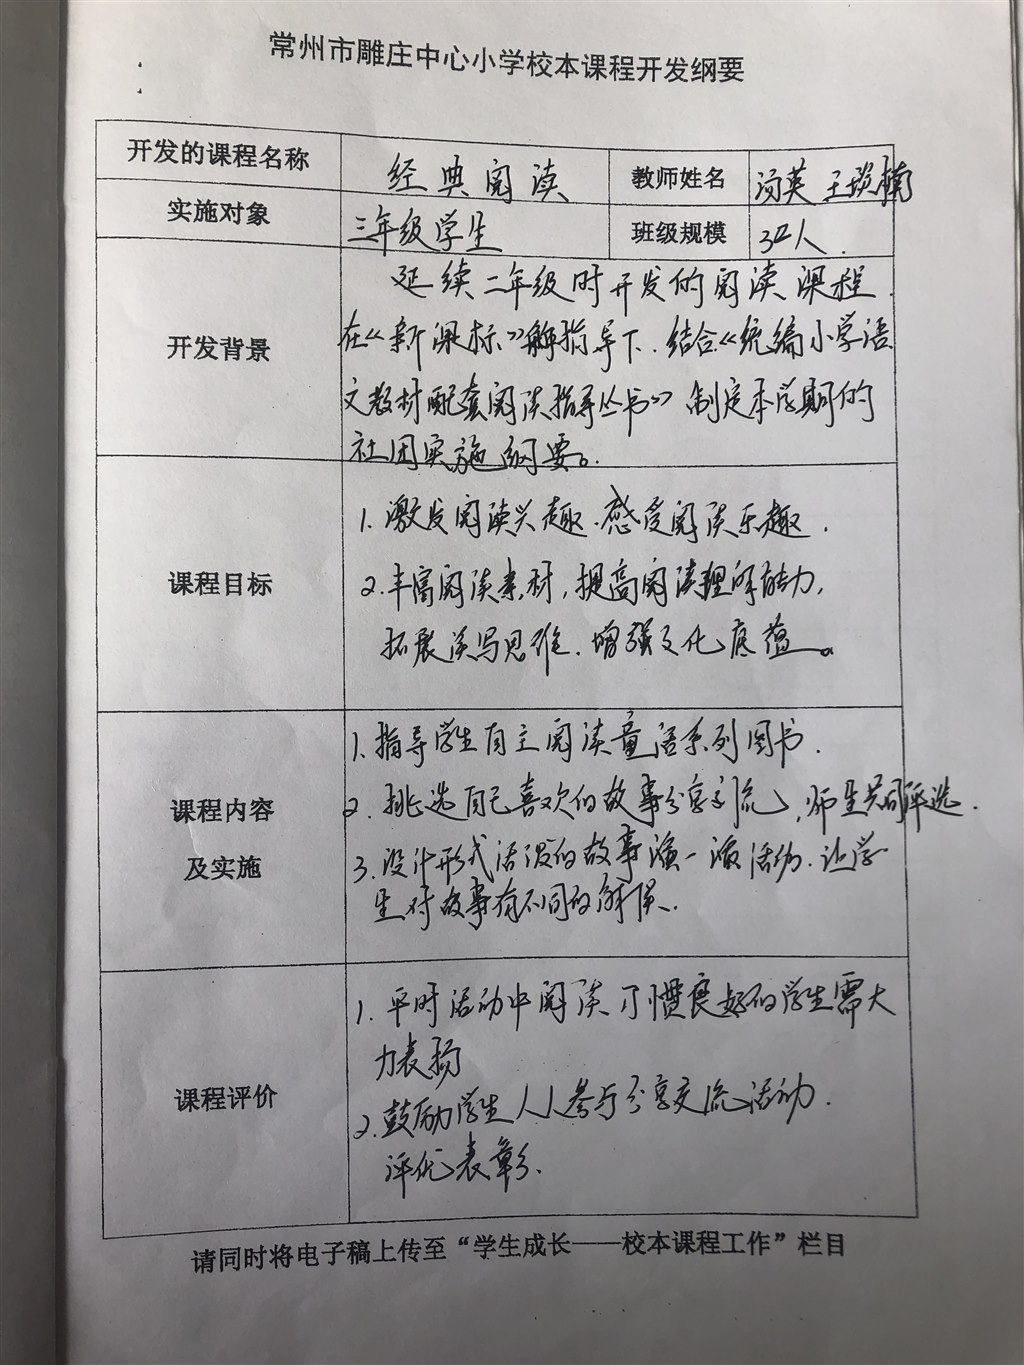 常州市雕庄中心小学校本课程开发纲要
开发的课程名称 经典阅读 教师姓名 汤英 王
实施对象 三年级学生 班级规模 32人.
开发背景
延续二年级时开发的阅读课程.
在《新课标》解指导下.结合《统编小学语
文教材配套阅读指导丛书》制定本学期的
社团实施纲要。
课程目标
1.激发阅读兴趣.感受阅读乐趣.
2.丰富阅读素材,提高阅读理解能力,
拓展读写思维.增强文化底蕴。
课程内容
及实施
1.指导学生自主阅读童话系列图书.
2.挑选自己喜欢的故事分享交流,师生共同评选.
3.设计形式活泼的故事演一演活动.让学
生对故事有不同的解读.
课程评价
1.平时活动中阅读习惯良好的学生需大
力表扬
2.鼓励学生人人参与分享交流活动.
评优表彰.
请同时将电子稿上传至“学生成长——校本课程工作”栏目